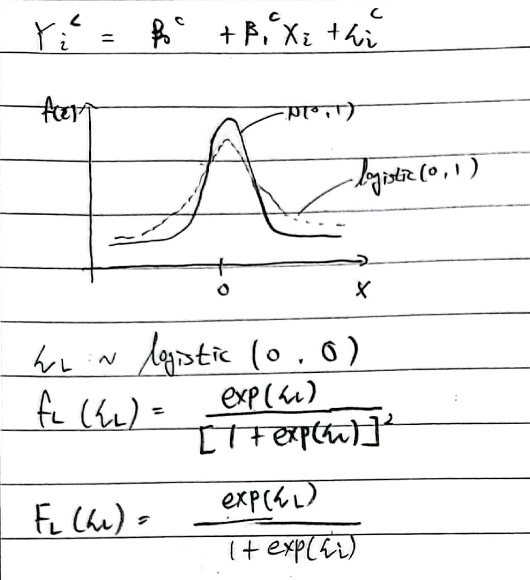 Yᵢᶜ = β₀ᶜ + β₁ᶜ Xᵢ + εᵢᶜ
f(ε)
N(0,1)
logistic(0,1)
0
X
ε_L ~ logistic (0, 0)
f_L (ε_L) = exp(ε_L) / [1 + exp(ε_L)]²
F_L (ε_L) = exp(ε_L) / 1 + exp(ε_i)